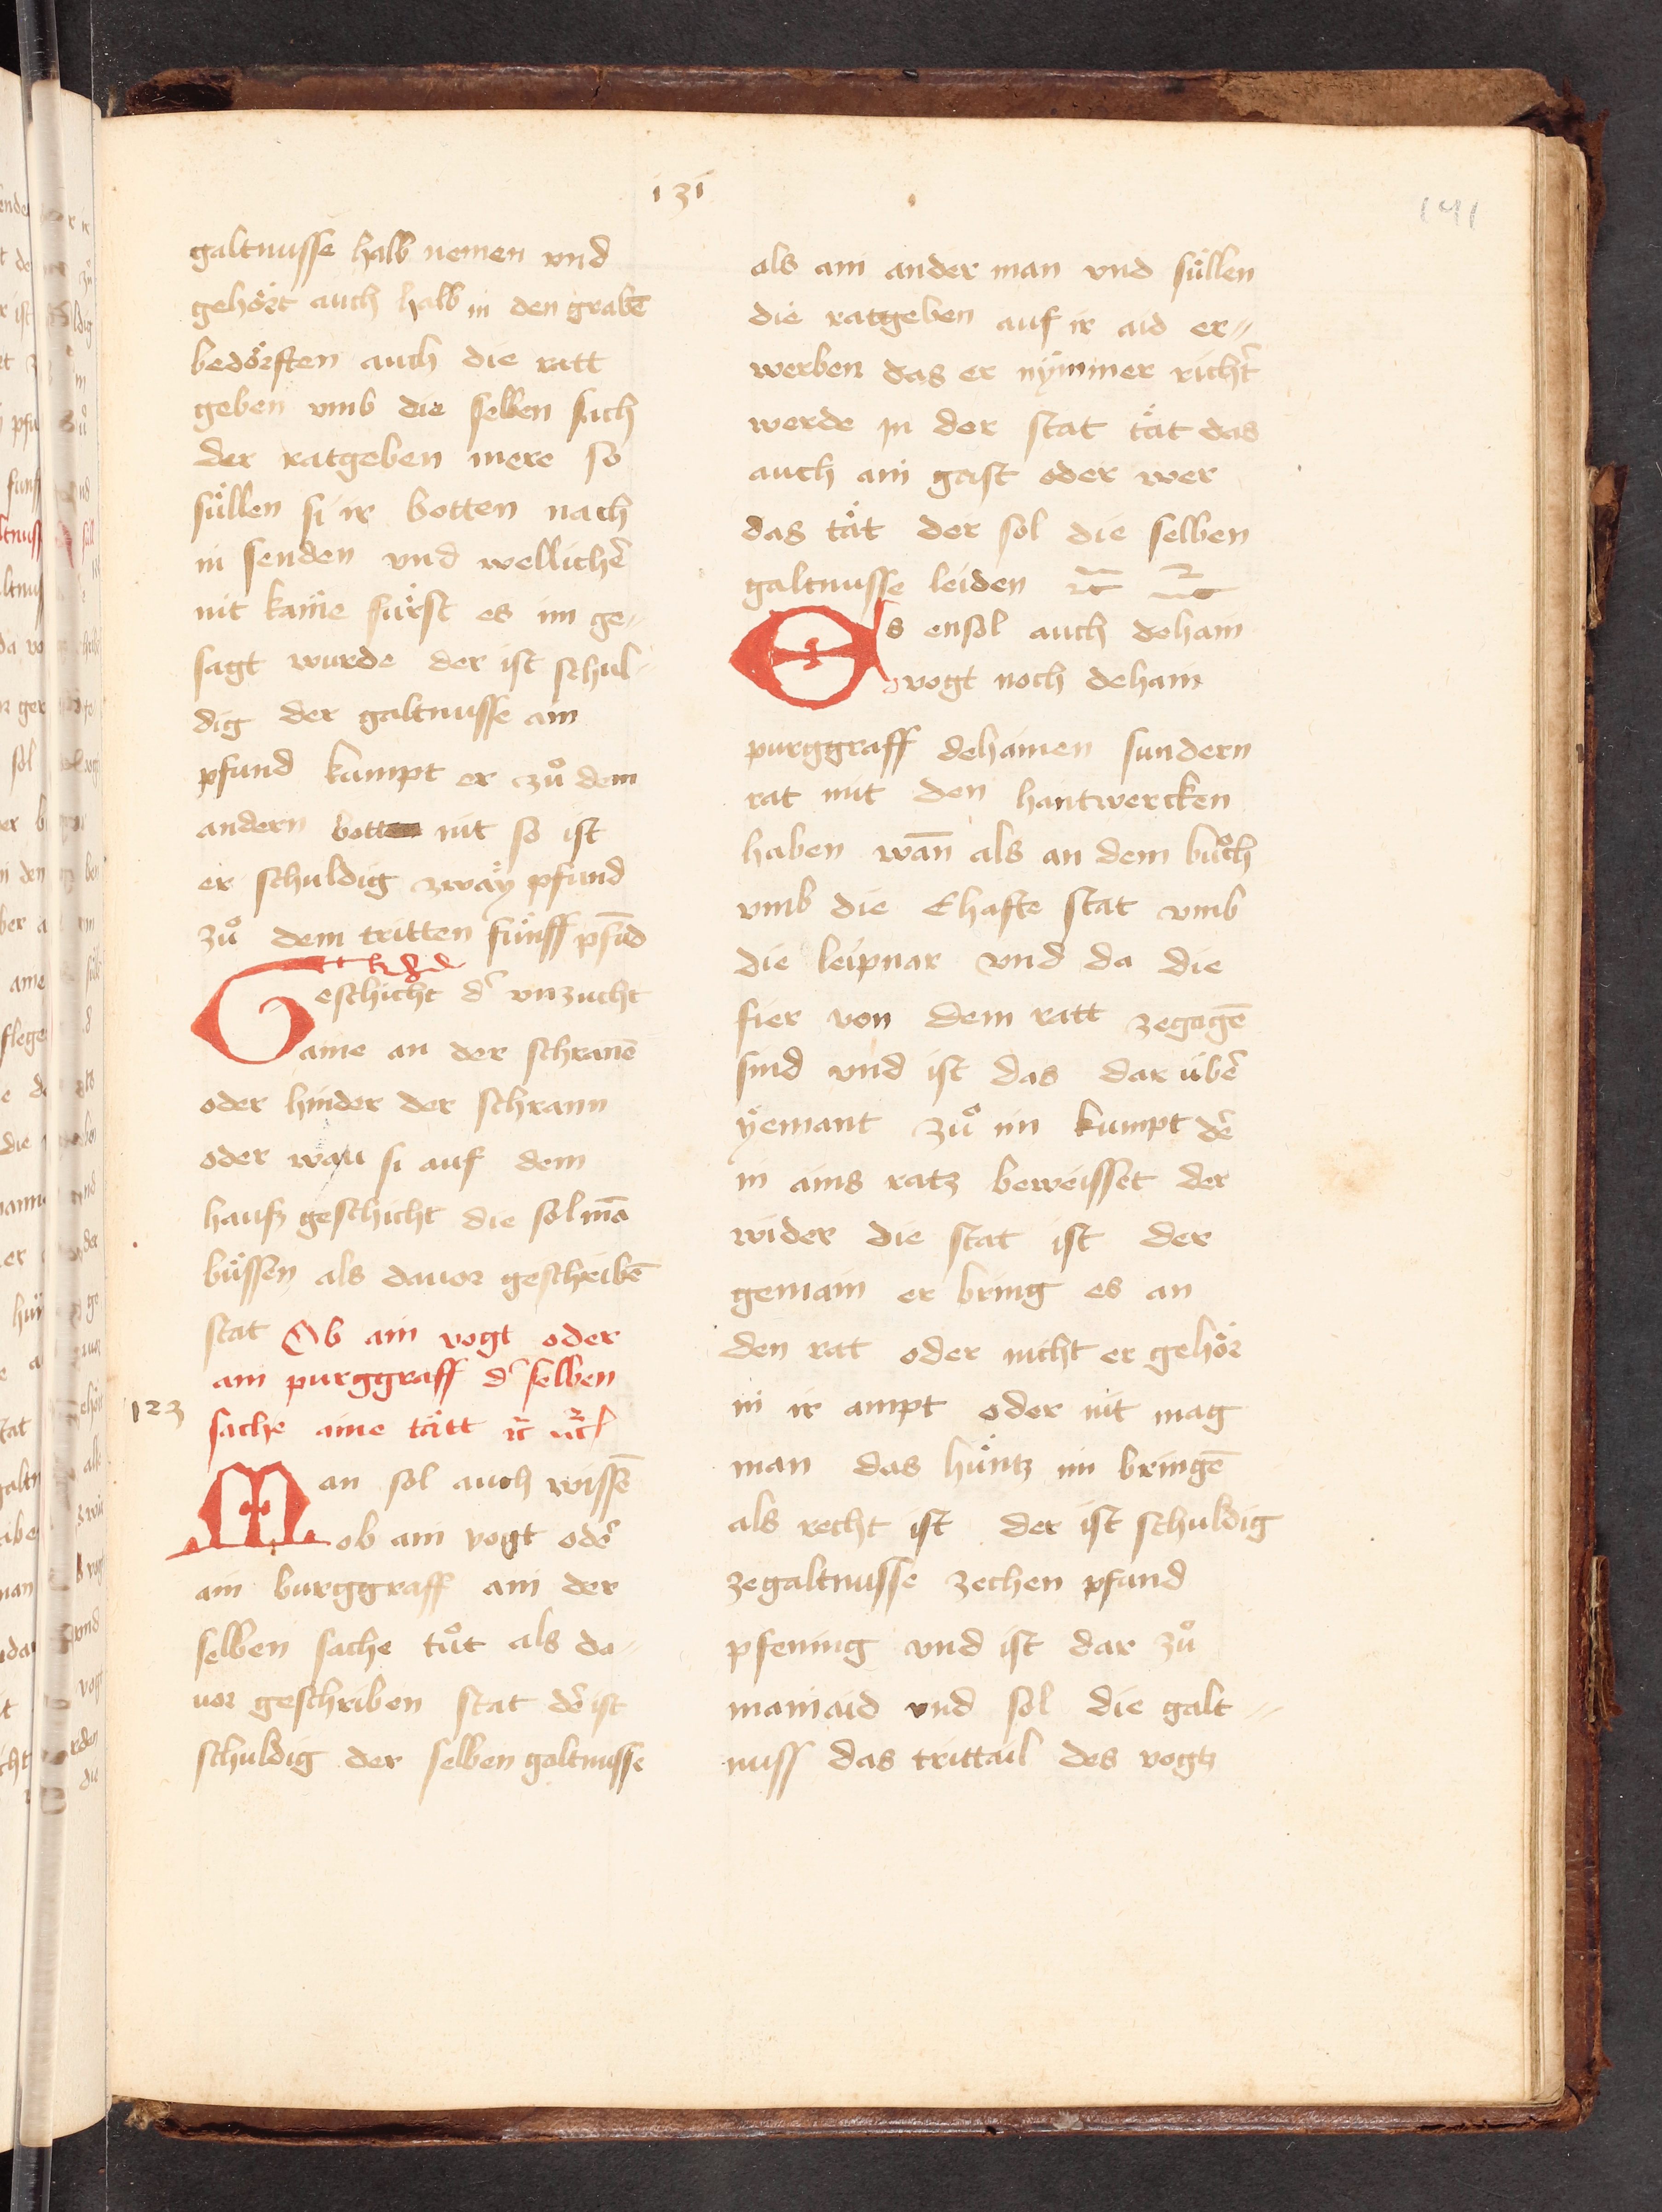 131
141
galtnusse halb nemen vnd
gehoͤrt auch halb in den grabē
bedoͤrften auch die ratt
geben vmb die selben sach
der ratgeben mere so
suͤllen si ir botten nach
in senden vnd wellichē
nit kaine fuͤrst es im ge〃
sagt wurde der ist schul〃
dig der galtnusse ain
pfund kumpt er zuͦ dem
andern botten nit so ist
er schuldig zwaÿ pfund
zuͦ dem tritten fuͤnff pfūd
Geschicht dˀ vnzucht
aine an der schrañē
oder hinder der schrann
oder wau si auf dem
hauß geschicht die sol mā
buͤssen als dauor geschribē
stat Ob ain vogt oder
ain purggraff dˀ selben
123
sache aine taͤtt ꝛc̄ ꝛc̄
Man sol auch wissē
ob ain vogt odˀ
ain burggraff ain der
selben sache tuͦt als da〃
uor geschriben stat dˀ ist
schuldig der selben galtnusse
als ain ander man vnd suͤllen
die ratgeben auf ir aid er〃
werben das er nÿmmer richtˀ
werde in der stat taͤt das
auch ain gast oder wer
das taͤt der sol die selben
galtnusse leiden ꝛc̄ ꝛc̄
Es ensol auch dehain
vogt noch dehain
purggraff dehainen sundern
rat mit den hantwercken
haben wān als an dem buͦch
vmb die Ehafte stat vmb
die leipnar vnd da die
fier von dem ratt zegegē
sind vnd ist das dar übˀ
yemant zuͦ im kumpt dˀ
in ains ratz beweisset der
wider die stat ist der
gemain er bring es an
den rat oder nicht er gehoͤr
in ir ampt oder nit mag
man das huͤntz im bringē
als recht ist der ist schuldig
zegaltnusse zechen pfund
pfening vnd ist dar zuͦ
mainaid vnd sol die galt〃
nuss das trittail des vogtz